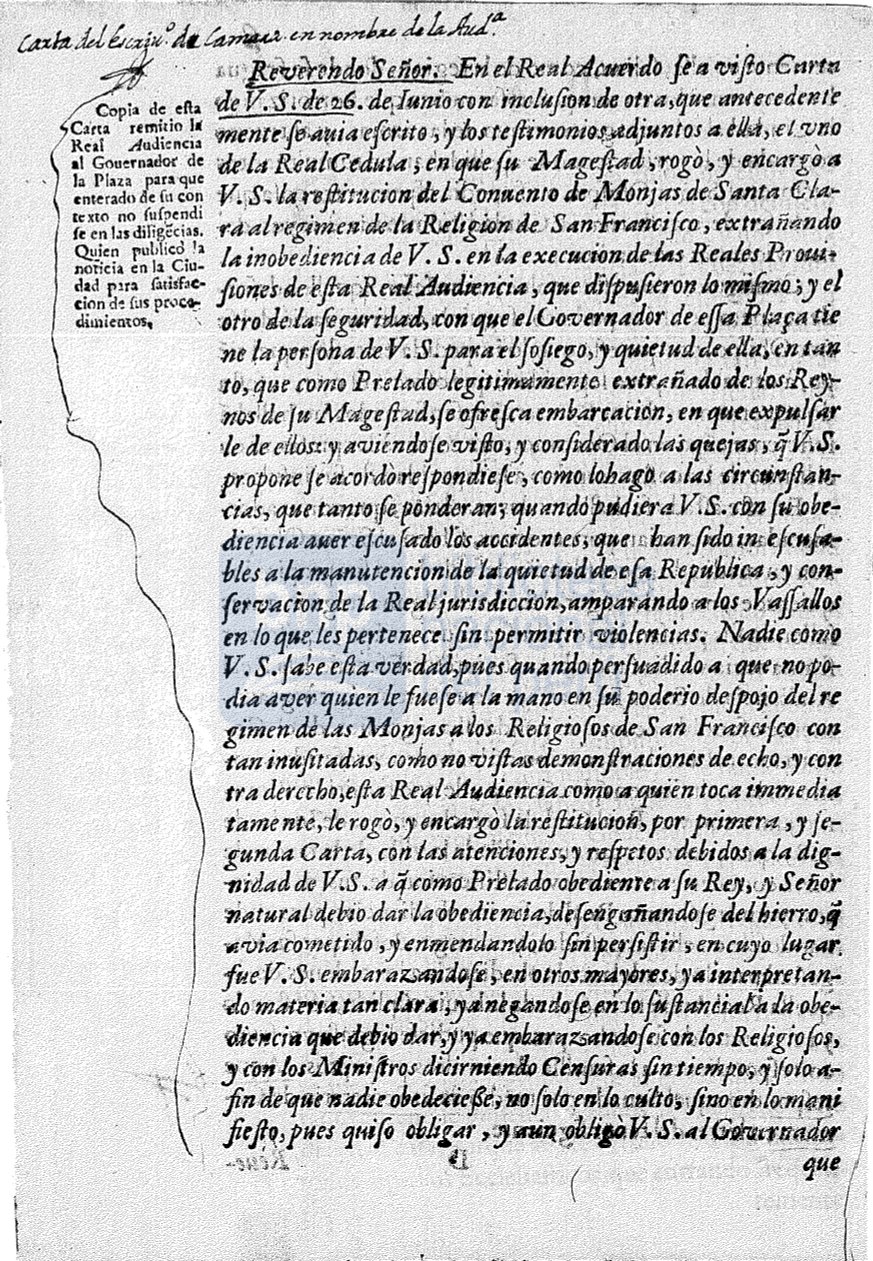 Carta del Escriu.º de Camara en nombre de la Aud.ª
Copia de esta
Carta remitio la
Real Audiencia
al Gouernador de
la Plaza para que
enterado de su con
texto no suspendi
se en las diligẽcias.
Quien publicó la
noticia en la Ciu-
dad para satisfac-
cion de sus proce-
dimientos.
Reverendo Señor. En el Real Acuerdo se a visto Carta
de V. S. de 26. de Iunio con inclusion de otra, que antecedente
mente se auia escrito, y los testimonios adjuntos a ella, el vno
de la Real Cedula, en que su Magestad, rogò, y encargò a
V. S. la restitucion del Conuento de Monjas de Santa Cla-
ra al regimen de la Religion de San Francisco, extrañando
la inobediencia de V. S. en la execucion de las Reales Proui-
siones de esta Real Audiencia, que dispusieron lo mismo; y el
otro de la seguridad, con que el Governador de essa Plaça tie
ne la persona de V. S. para el sosiego, y quietud de ella, en tan
to, que como Prelado legitimamente extrañado de los Rey-
nos de su Magestad, se ofresca embarcacion, en que expulsar
le de ellos: y aviendose visto, y considerado las quejas, q̃ V. S.
propone se acordò respondiese, como lo hago a las circunstan-
cias, que tanto se ponderan; quando pudiera V. S. con su obe-
diencia auer escusado los accidentes, que han sido inescusa-
bles a la manutencion de la quietud de esa Republica, y con-
servacion de la Real jurisdiccion, amparando a los Vassallos
en lo que les pertenece sin permitir violencias. Nadie como
V. S. sabe esta verdad, pues quando persuadido a que no po-
dia aver quien le fuese a la mano en su poderio despojo del re
gimen de las Monjas a los Religiosos de San Francisco con
tan inusitadas, como no vistas demonstraciones de echo, y con
tra derecho, esta Real Audiencia como a quien toca immedia
tamente, le rogò, y encargò la restitucion, por primera, y se-
gunda Carta, con las atenciones, y respetos debidos a la dig-
nidad de V. S. a q̃ como Prelado obediente a su Rey, y Señor
natural debio dar la obediencia, desengañandose del hierro, q̃
avia cometido, y enmendandolo sin persistir, en cuyo lugar
fue V. S. embarazandose, en otros mayores, ya interpretan-
do materia tan clara, ya negandose en lo sustancial a la obe-
diencia que debio dar, y ya embarazandose con los Religiosos,
y con los Ministros dicirniendo Censuras sin tiempo, y solo a-
fin de que nadie obedeciesse, no solo en lo culto, sino en lo mani
fiesto, pues quiso obligar, y aun obligò V. S. al Governador
que